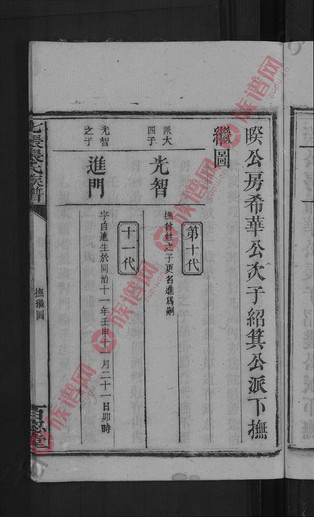 睽公房希華公次子紹箕公派下撫
繼圖
第十代
派大
四子
光智
撫
之子更名進爲嗣
十一代
光智
之子
進門
字自進生於同治十一年壬申十一月二十一日卯時
撫繼圖
族譜网
zupu.cn